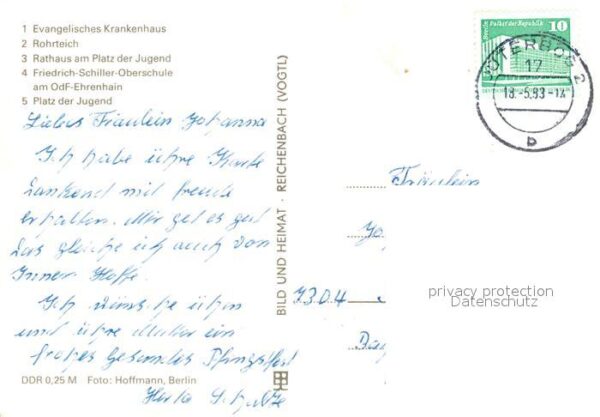 1 Evangelisches Krankenhaus
2 Rohrteich
3 Rathaus am Platz der Jugend
4 Friedrich-Schiller-Oberschule
am OdF-Ehrenhain
5 Platz der Jugend
Liebes Fräulein Johanna
Ich habe ihre Karte
dankend mit freude
erhalten. Mir get es gut
das gleiche ich auch von
Ihnen Hoffe.
Ich wünsche ihnen
und ihre Mutter ein
frohes gesundes Pfingstfest
Herta Schulze
DDR 0,25 M Foto: Hoffmann, Berlin
BILD UND HEIMAT · REICHENBACH (VOGTL)
Berlin Palast der Republik
10
JÜTERBOG 2
17
18.-5.83-1X
b
Fräulein
Jo
7304
privacy protection
Datenschutz